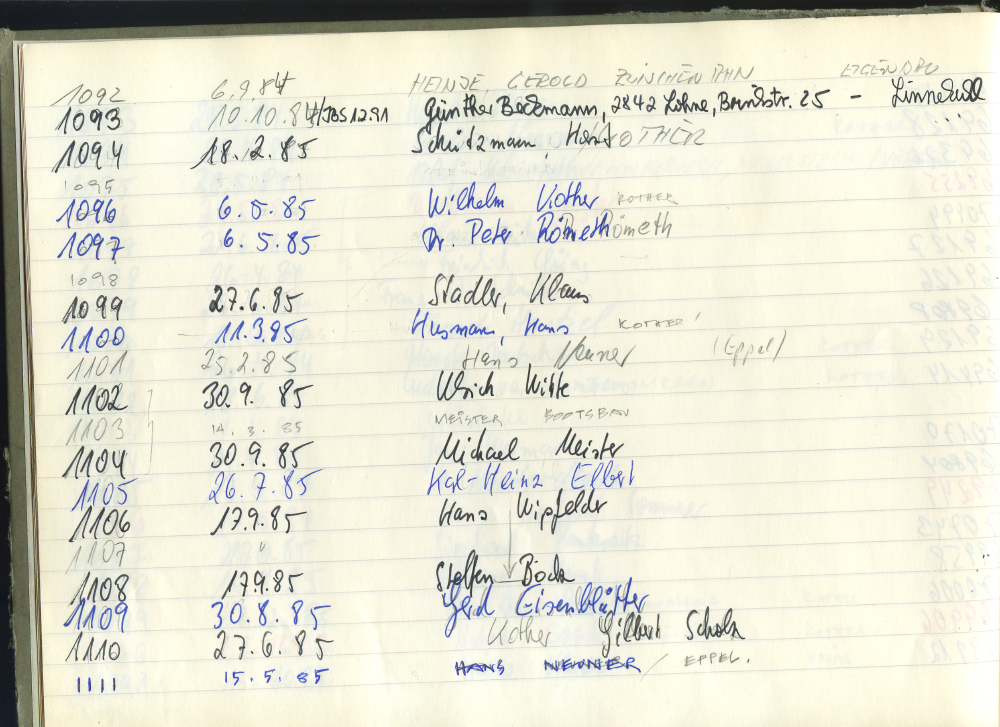 1092 6.9.84 HEINZE, GEROLD ZÜNCHENTHN EIGENBAU
1093 10.10.84/JBS 12.91 Günther Beckmann, 2842 Lohne, Brinkstr. 25 -
1094 18.2.85 Schützmann, Horst KOTHER
1095
1096 6.5.85 Wilhelm Kother KOTHER
1097 6.5.85 Dr. Peter Römeth Römeth
1098
1099 27.6.85 Stadler, Klaus
1100 11.3.85 Husmann, Hans KOTHER
1101 25.2.85 Hans Neuner (Eppel)
1102 30.9.85 Ulrich Witte
1103 14.3.85 MEISTER BOOTSBAU
1104 30.9.85 Michael Meister
1105 26.7.85 Karl-Heinz Elbert
1106 17.9.85 Hans Wipfelder
1107 "
1108 17.9.85 Steffen Bock
1109 30.8.85 Gerd Eisenblätter
1110 27.6.85 Kother Gilbert Scholz
1111 15.5.85 HANS NEUNER / EPPEL.